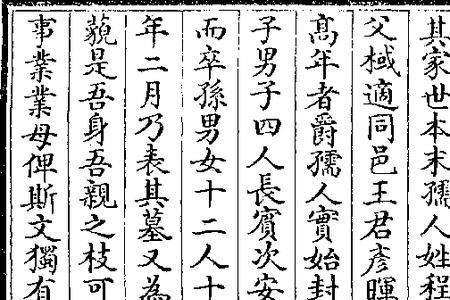 其家世本末孺人姓程
父棫適同邑王君彦暉
髙年者爵孺人實始封
子男子四人長賔次安
而卒孫男女十二人十
年二月乃表其墓又為
藐是吾身吾親之枝可
事業業母俾斯文獨有